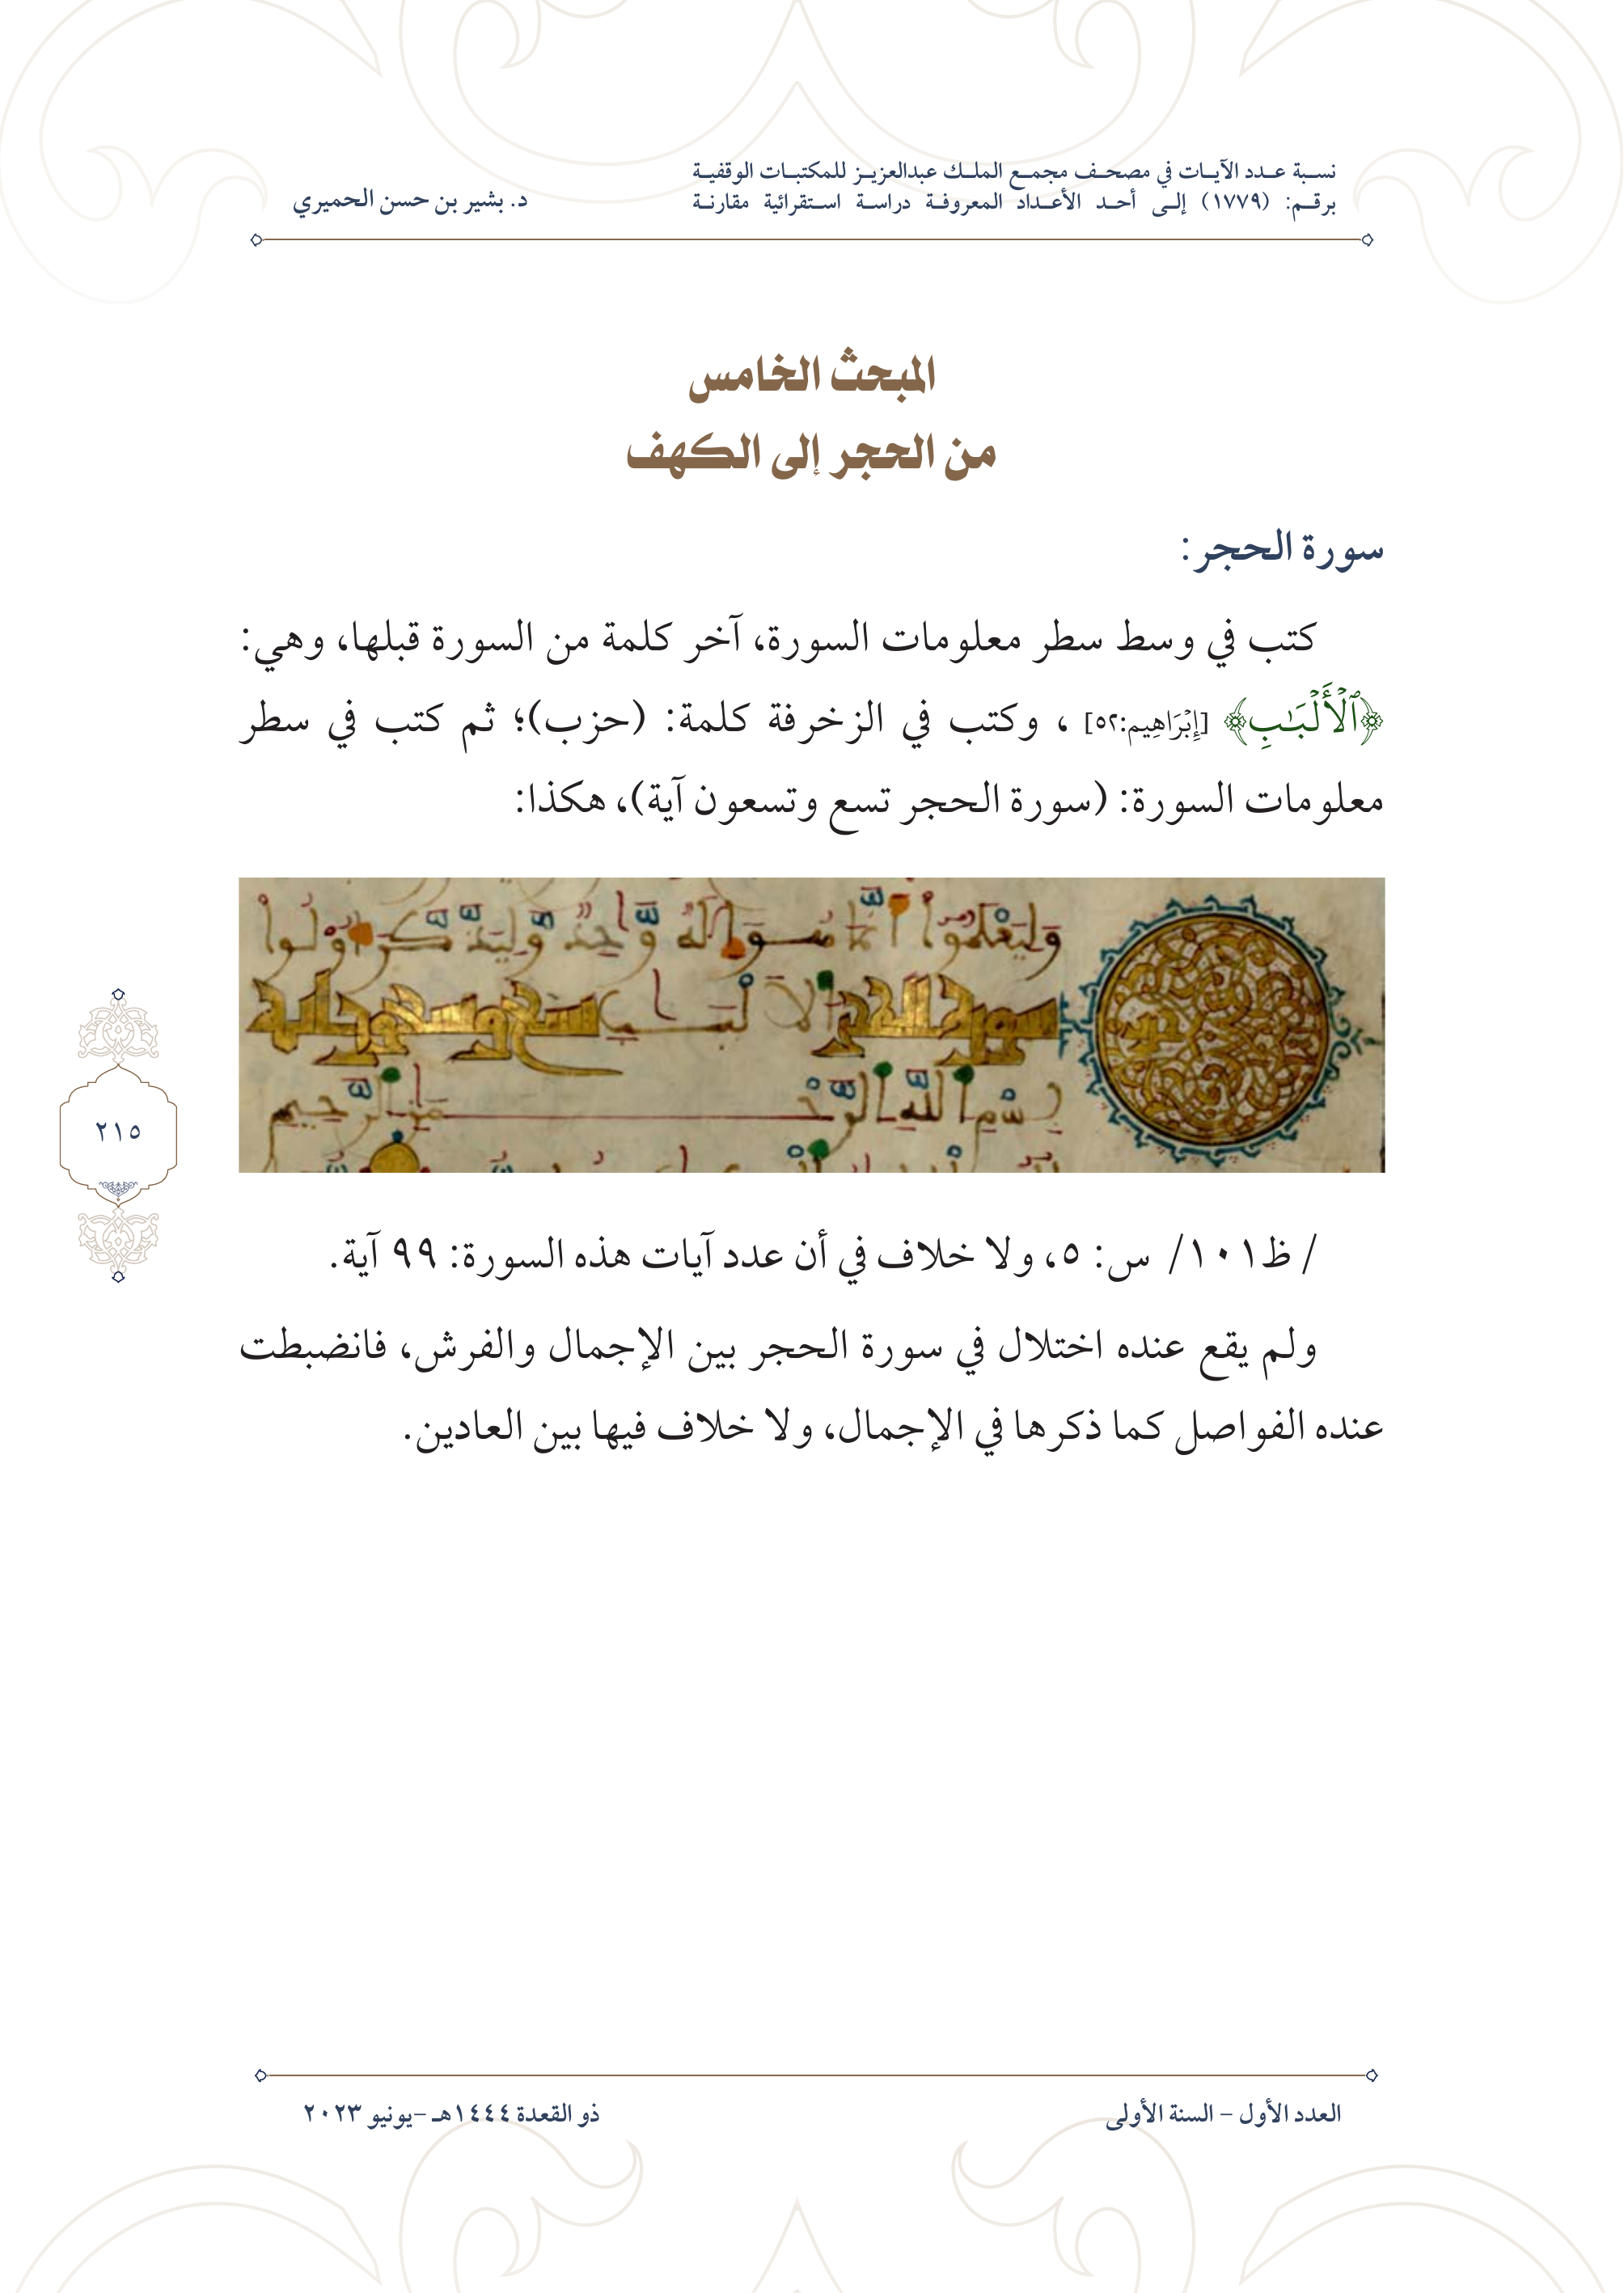 نسبة عدد الآيات في مصحف مجمع الملك عبدالعزيز للمكتبات الوقفية
برقم: (١٧٧٩) إلى أحد الأعداد المعروفة دراسة استقرائية مقارنة
د. بشير بن حسن الحميري
المبحث الخامس
من الحجر إلى الكهف
سورة الحجر:
كتب في وسط سطر معلومات السورة، آخر كلمة من السورة قبلها، وهي:
﴿ٱلۡأَلۡبَٰبِ﴾ [إِبۡرَاهِيم:٥٢] ، وكتب في الزخرفة كلمة: (حزب)؛ ثم كتب في سطر
معلومات السورة: (سورة الحجر تسع وتسعون آية)، هكذا:
وَلِيَعْلَمُوا أَنَّمَا هُوَ إِلَهٌ وَاحِدٌ وَلِيَذَّكَّرَ أُولُوا
سورة الحجر الألباب تسع وتسعون آية
بسم الله الرحمن الرحيم
٢١٥
/ ظ١٠١/ س: ٥، ولا خلاف في أن عدد آيات هذه السورة: ٩٩ آية.
ولم يقع عنده اختلال في سورة الحجر بين الإجمال والفرش، فانضبطت
عنده الفواصل كما ذكرها في الإجمال، ولا خلاف فيها بين العادين.
العدد الأول – السنة الأولى
ذو القعدة ١٤٤٤هـ –يونيو ٢٠٢٣